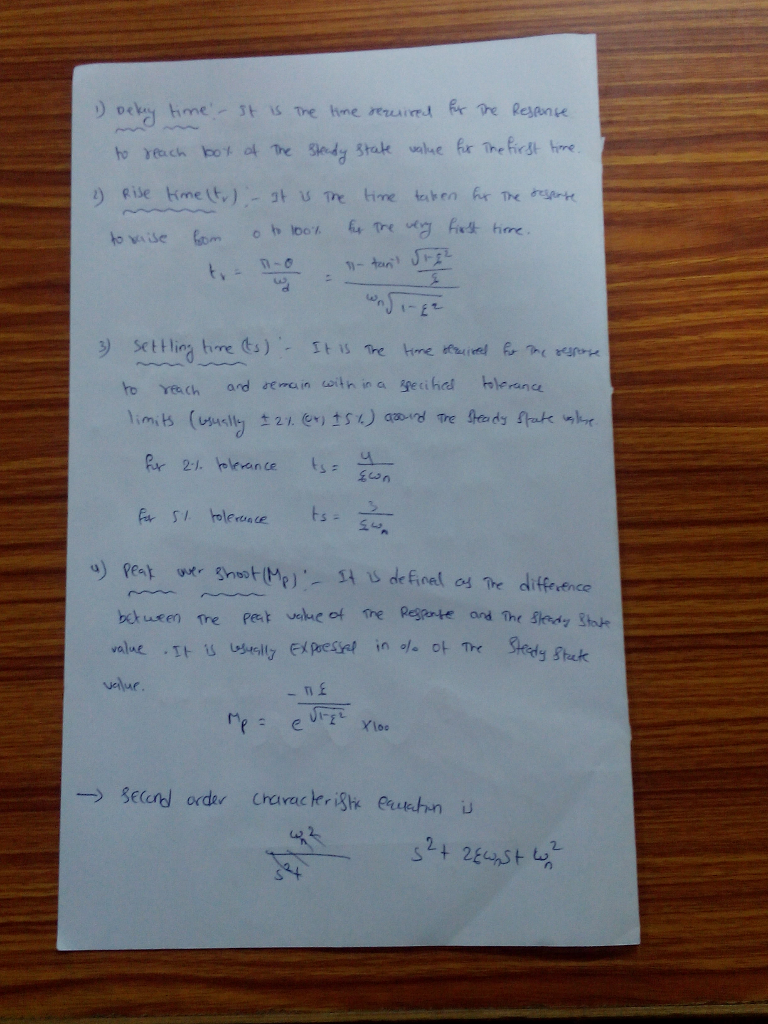 1) Delay time :- It is the time required for the Response
to reach 100% of the steady state value for the first time.
2) Rise time (tr) :- It is the time taken for the response
to raise from 0 to 100% for the very first time.
tr = π-θ / ωd = π - tan⁻¹ (√1-ξ² / ξ) / ωn√1-ξ²
3) Settling time (ts) :- It is the time required for the response
to reach and remain within a specified tolerance
limits (usually ±2% (or) ±5%) around the steady state value.
for 2% tolerance ts = 4 / ξωn
for 5% tolerance ts = 3 / ξωn
4) Peak over shoot (Mp) :- It is defined as the difference
between the peak value of the Response and the steady state
value. It is usually expressed in % of the steady state
value.
Mp = e^(-πξ / √1-ξ²) ×100
→ Second order characteristic equation is
ωn² / s²+ s²+ 2ξωns + ωn²